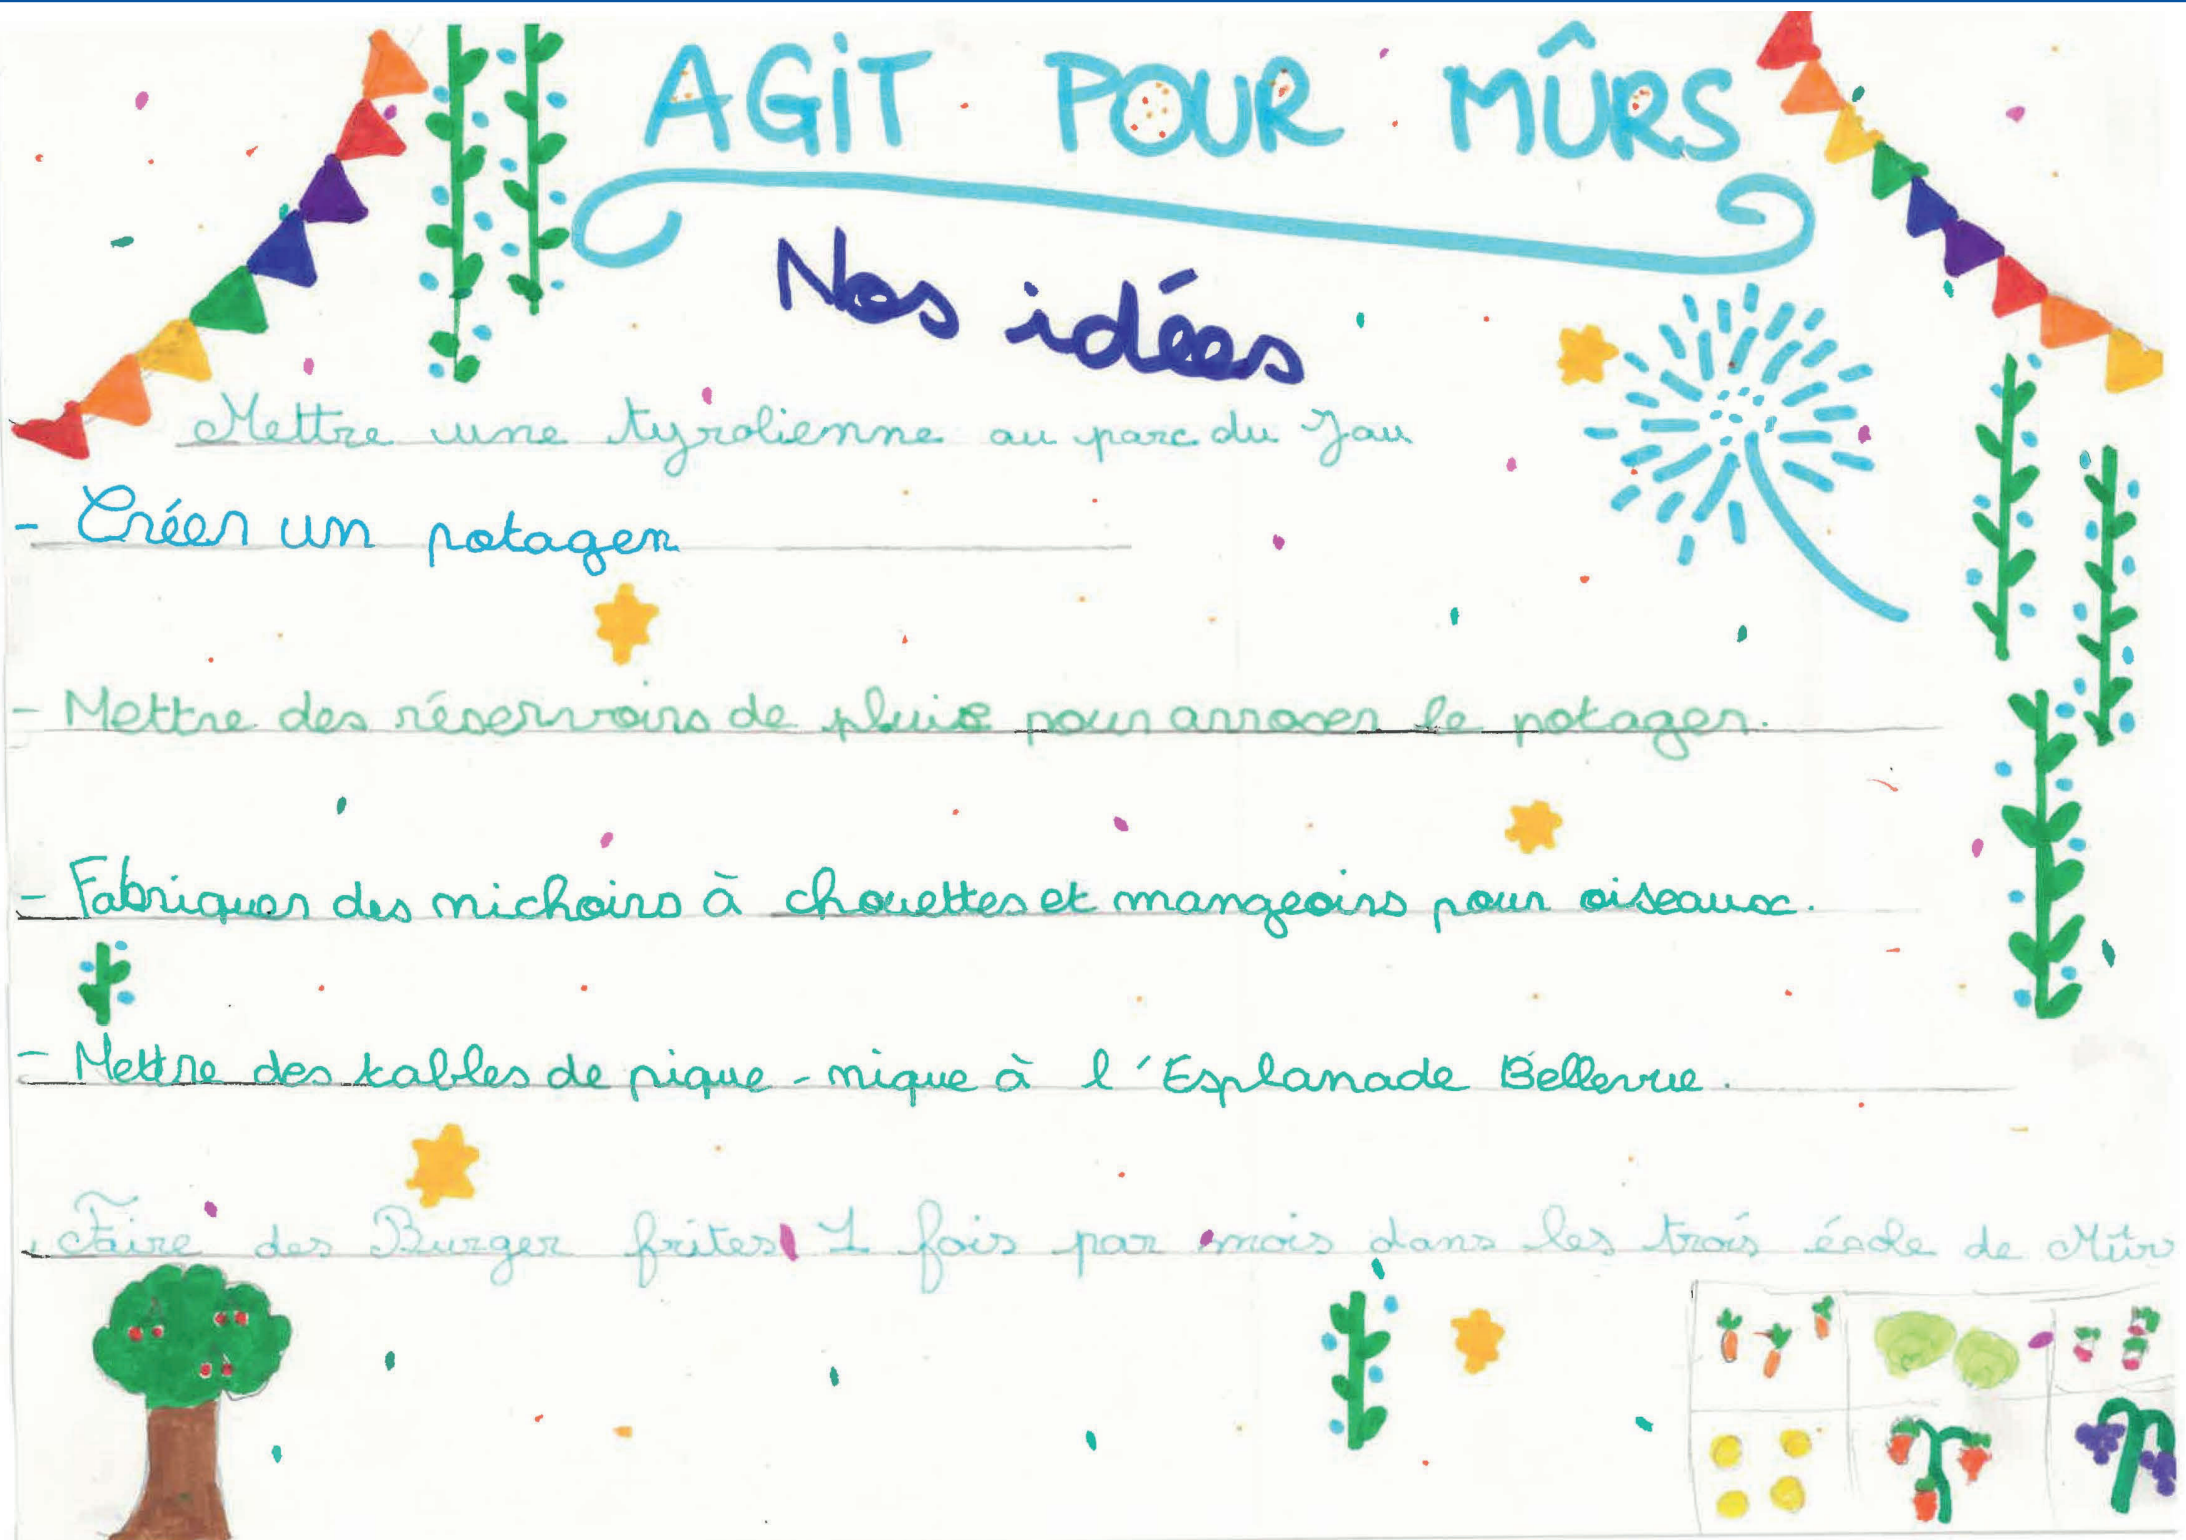 AGIT POUR MÛRS
Nos idées
Mettre une tyrolienne au parc du Jau
- Créer un potager
- Mettre des réservoirs de pluie pour arroser le potager.
- Fabriquer des nichoirs à chouettes et mangeoirs pour oiseaux.
- Mettre des tables de pique-nique à l'Esplanade Bellevue.
- Faire des Burger frites 1 fois par mois dans les trois école de Mûrs